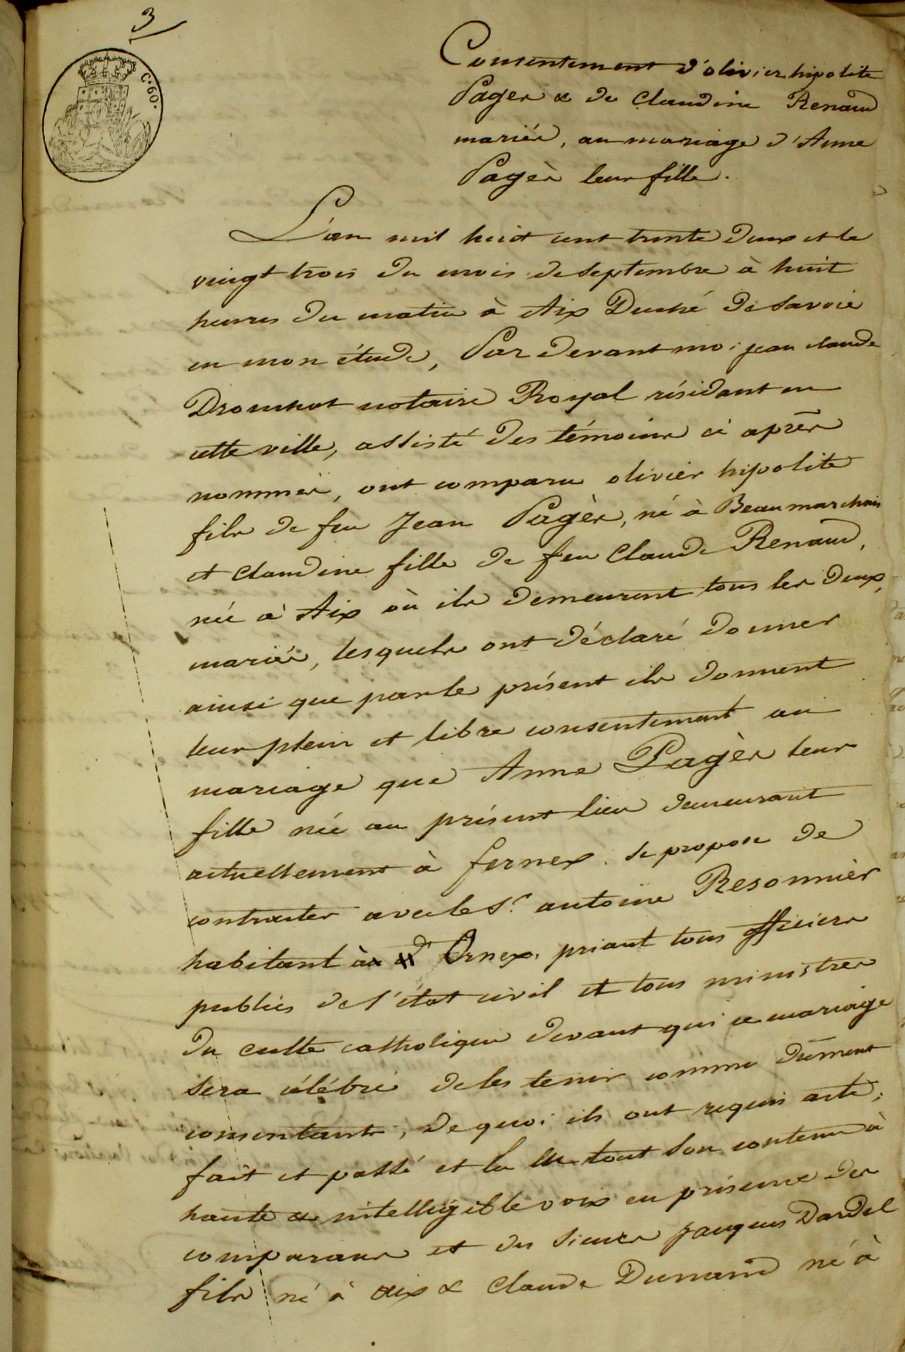 3
C. 60.
Consentement d'olivier hipolite
Pagès & de Claudine Renaud
mariés, au mariage d'Anne
Pagès leur fille.
L'an mil huit cent trente deux et le
vingt trois du mois de septembre à huit
heures du matin à Aix Duché de Savoie
en mon étude, Par devant moi jean claude
notaire Royal résidant en
cette ville, assisté des témoins ci après
nommés, ont comparu olivier hipolite
fils de feu Jean Pagès, né à Beaumarchais
et claudine fille de feu Claude Renaud,
née à Aix où ils demeurent tous les deux,
mariés, lesquels ont déclaré donner
ainsi que par le présent ils donnent
leur plein et libre consentement au
mariage que Anne Pagès leur
fille née au présent lieu demeurant
actuellement à fernex. se propose de
contracter avec le Sr. antoine Resonnier
habitant à d'Ornex, priant tous officiers
publics de l'état civil et tous ministres
du culte catholique devant qui ce mariage
sera célébré de les tenir comme dûment
consentants, de quoi ils ont requis acte,
fait et passé et lu tout son contenu à
haute & intelligible voix en présence des
comparans et des sieurs jacques Dardel
fils né à aix & Claude Dunand né à